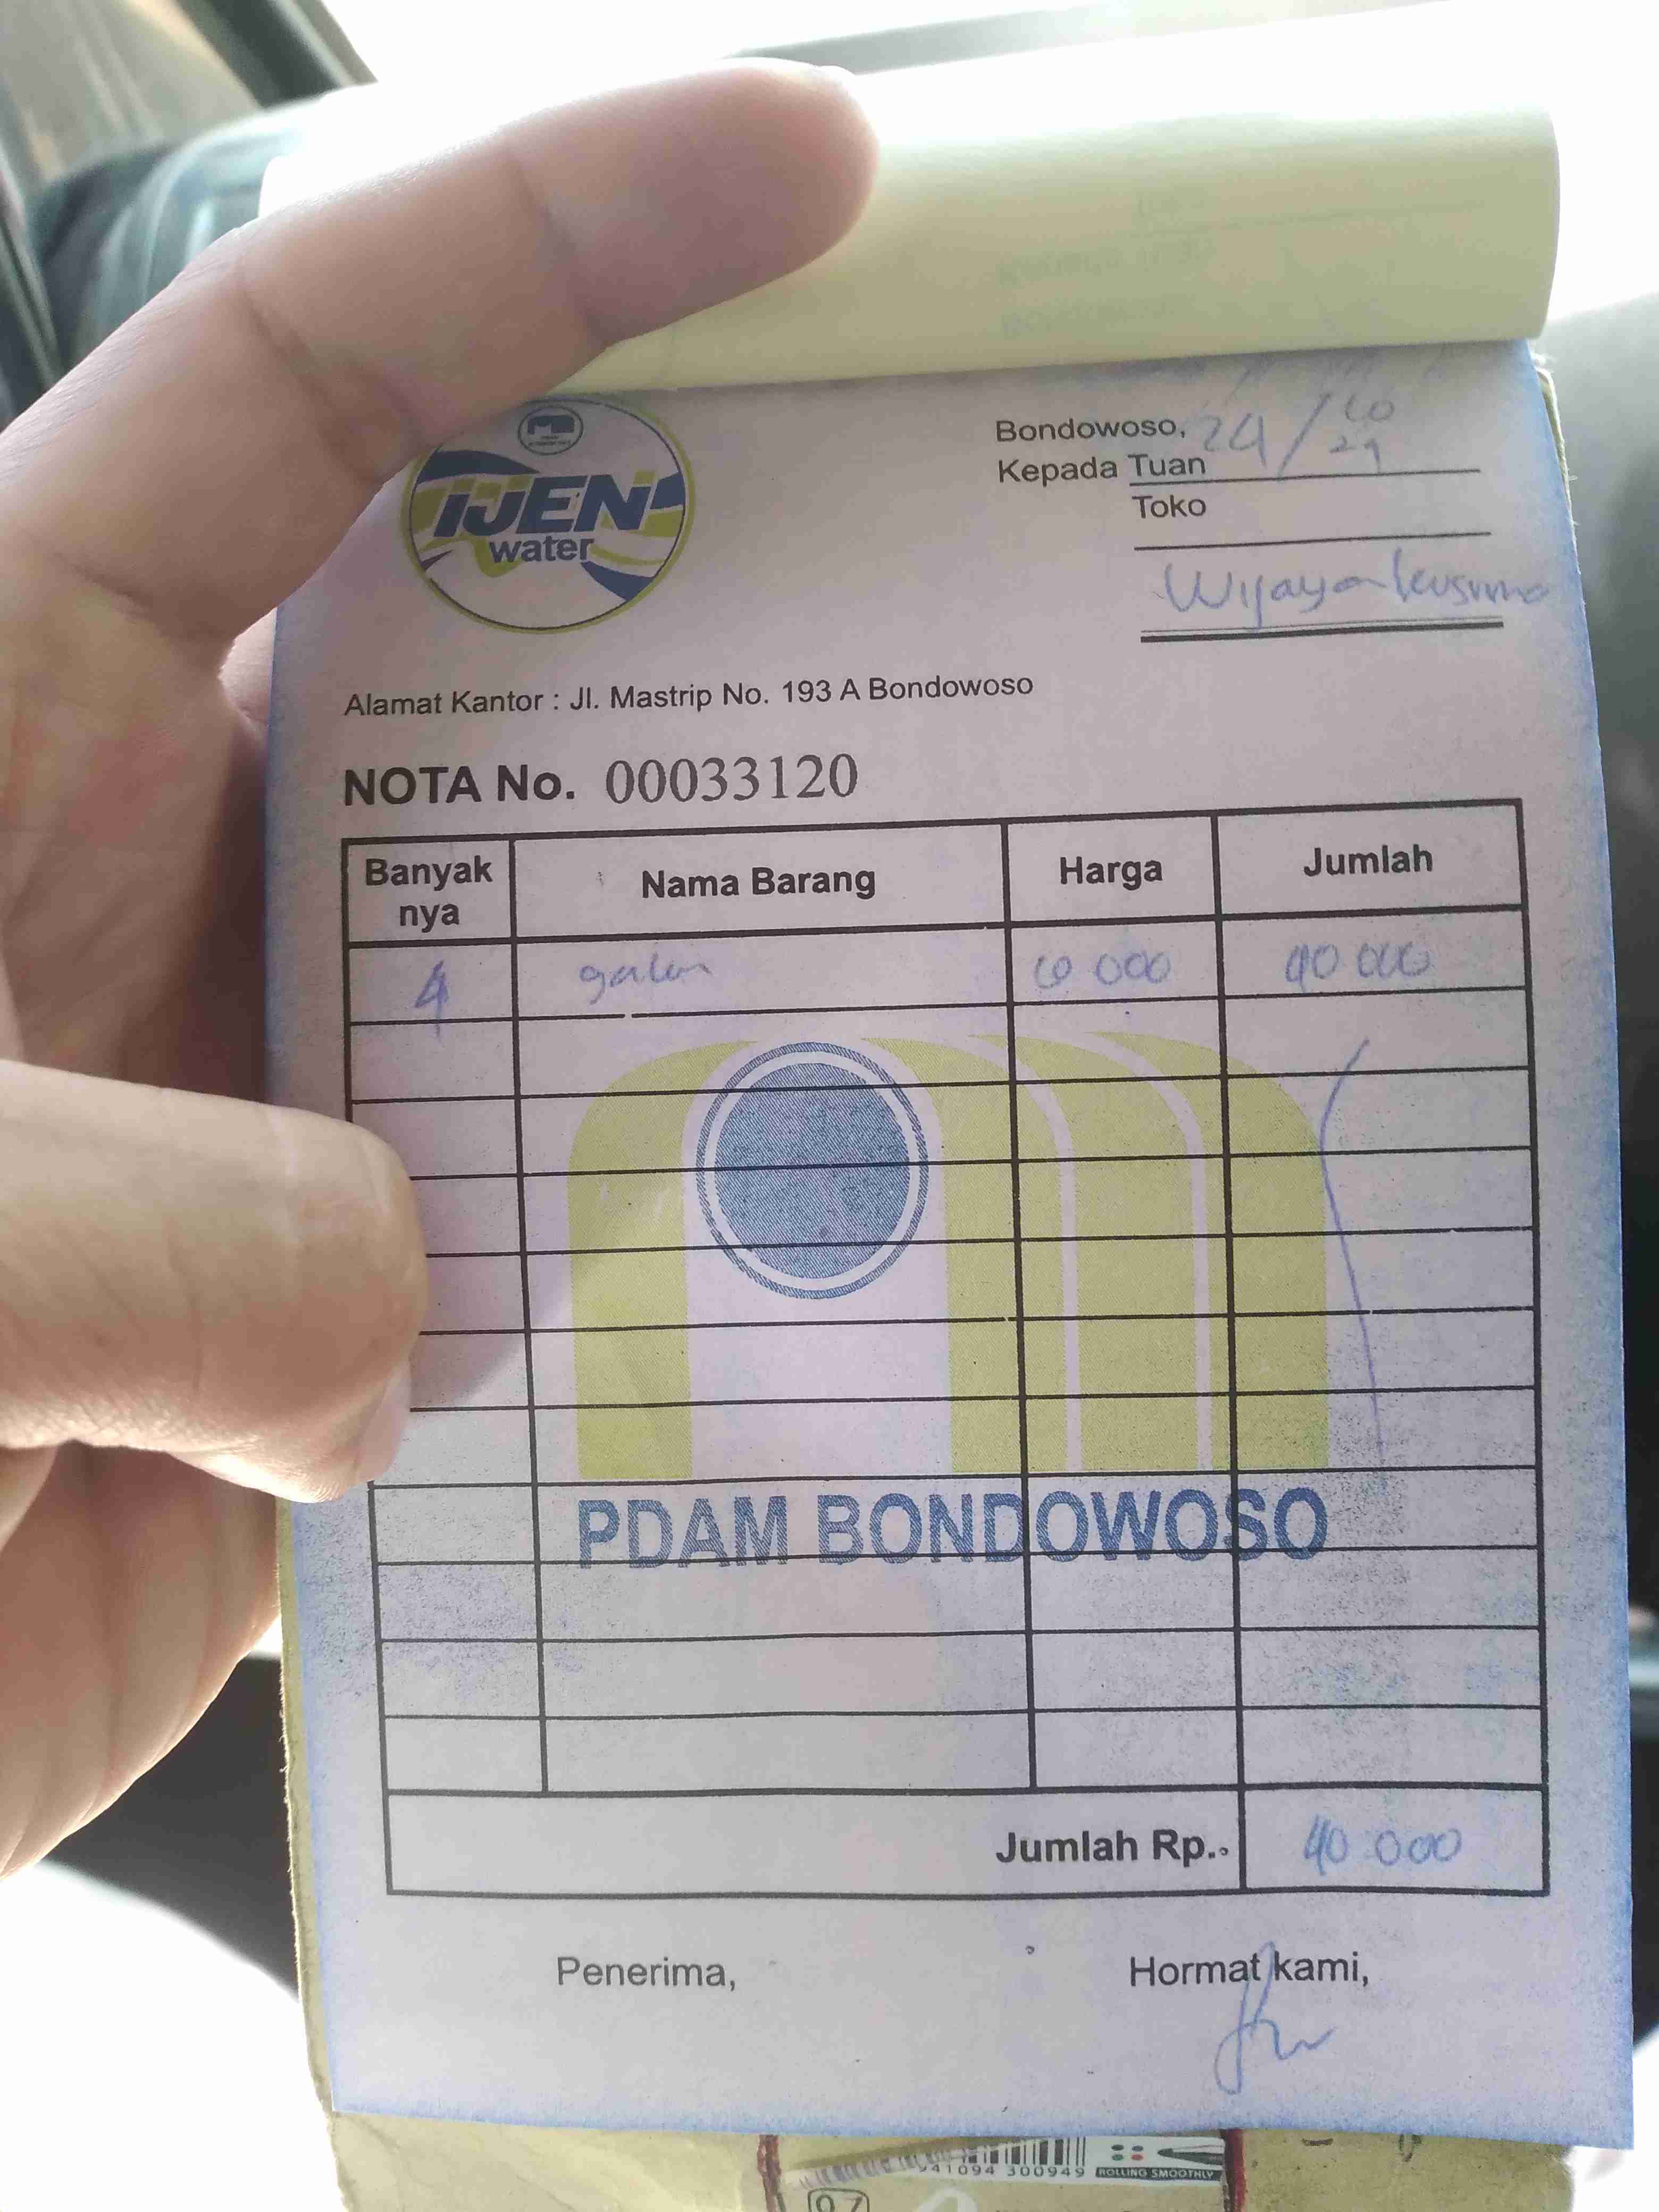 IJEN
water
Bondowoso, 24/10
24
Kepada Tuan
Toko
Wijaya kusuma
Alamat Kantor : Jl. Mastrip No. 193 A Bondowoso
NOTA No. 00033120
Banyak nya Nama Barang Harga Jumlah
4 galon 10 000 40 000
PDAM BONDOWOSO
Jumlah Rp.. 40.000
Penerima, Hormat kami,
41094 300949 ROLLING SMOOTHLY